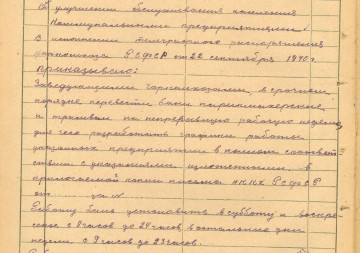 Об улучшении обслуживания населения
Коммунальными предприятиями.
В исполнении телеграфного распоряжения
наркомхоза РСФСР от 22 сентября 1940 г.
приказываю:
Заведующим горкомхозами, в срочном
порядке перевести бани парикмахерские,
и трамвай на непрерывную рабочую неделю,
для чего разработать графики работы
указанных предприятий в полном соответ-
ствии с указаниями изложенными в
прилагаемой копии письма НККХ РСФСР
от за №
Работу бань установить в субботу и воскре-
сенье с 8 часов до 24 часов в остальные дни
недели с 9 часов до 23 часов.